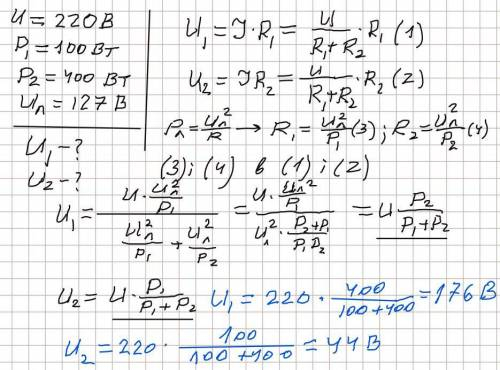 U = 220 В
P₁ = 100 Вт
P₂ = 400 Вт
Uл = 127 В
U₁ - ?
U₂ - ?
U₁ = J·R₁ = U/(R₁+R₂)·R₁ (1)
U₂ = JR₂ = U/(R₁+R₂)·R₂ (2)
Pл = Uл²/R → R₁ = Uл²/P₁ (3); R₂ = Uл²/P₂ (4)
(3); (4) в (1); (2)
U₁ = (U·Uл²/P₁)/(Uл²/P₁ + Uл²/P₂) = (U·Uл²/P₁)/(Uл²·(P₂+P₁)/(P₁P₂)) = U P₂/(P₁+P₂)
U₂ = U·P₁/(P₁+P₂) U₁ = 220·400/(100+400) = 176 В
U₂ = 220·100/(100+400) = 44 В